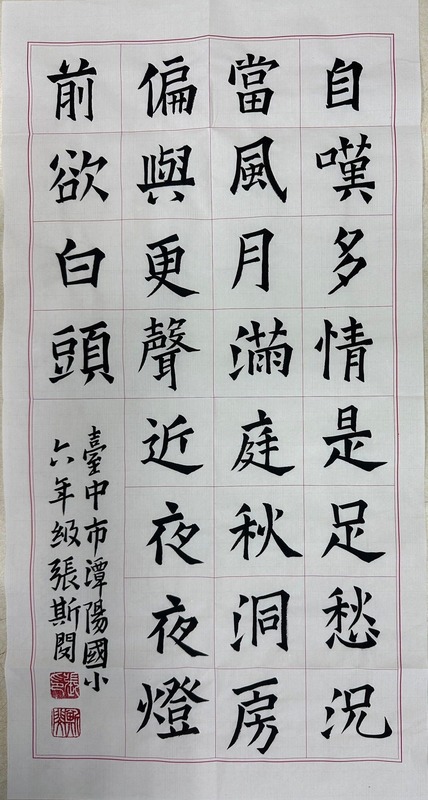 自嘆多情是足愁況
當風月滿庭秋洞房
偏與更聲近夜夜燈
前欲白頭
臺中市潭陽國小
六年級張斯閔